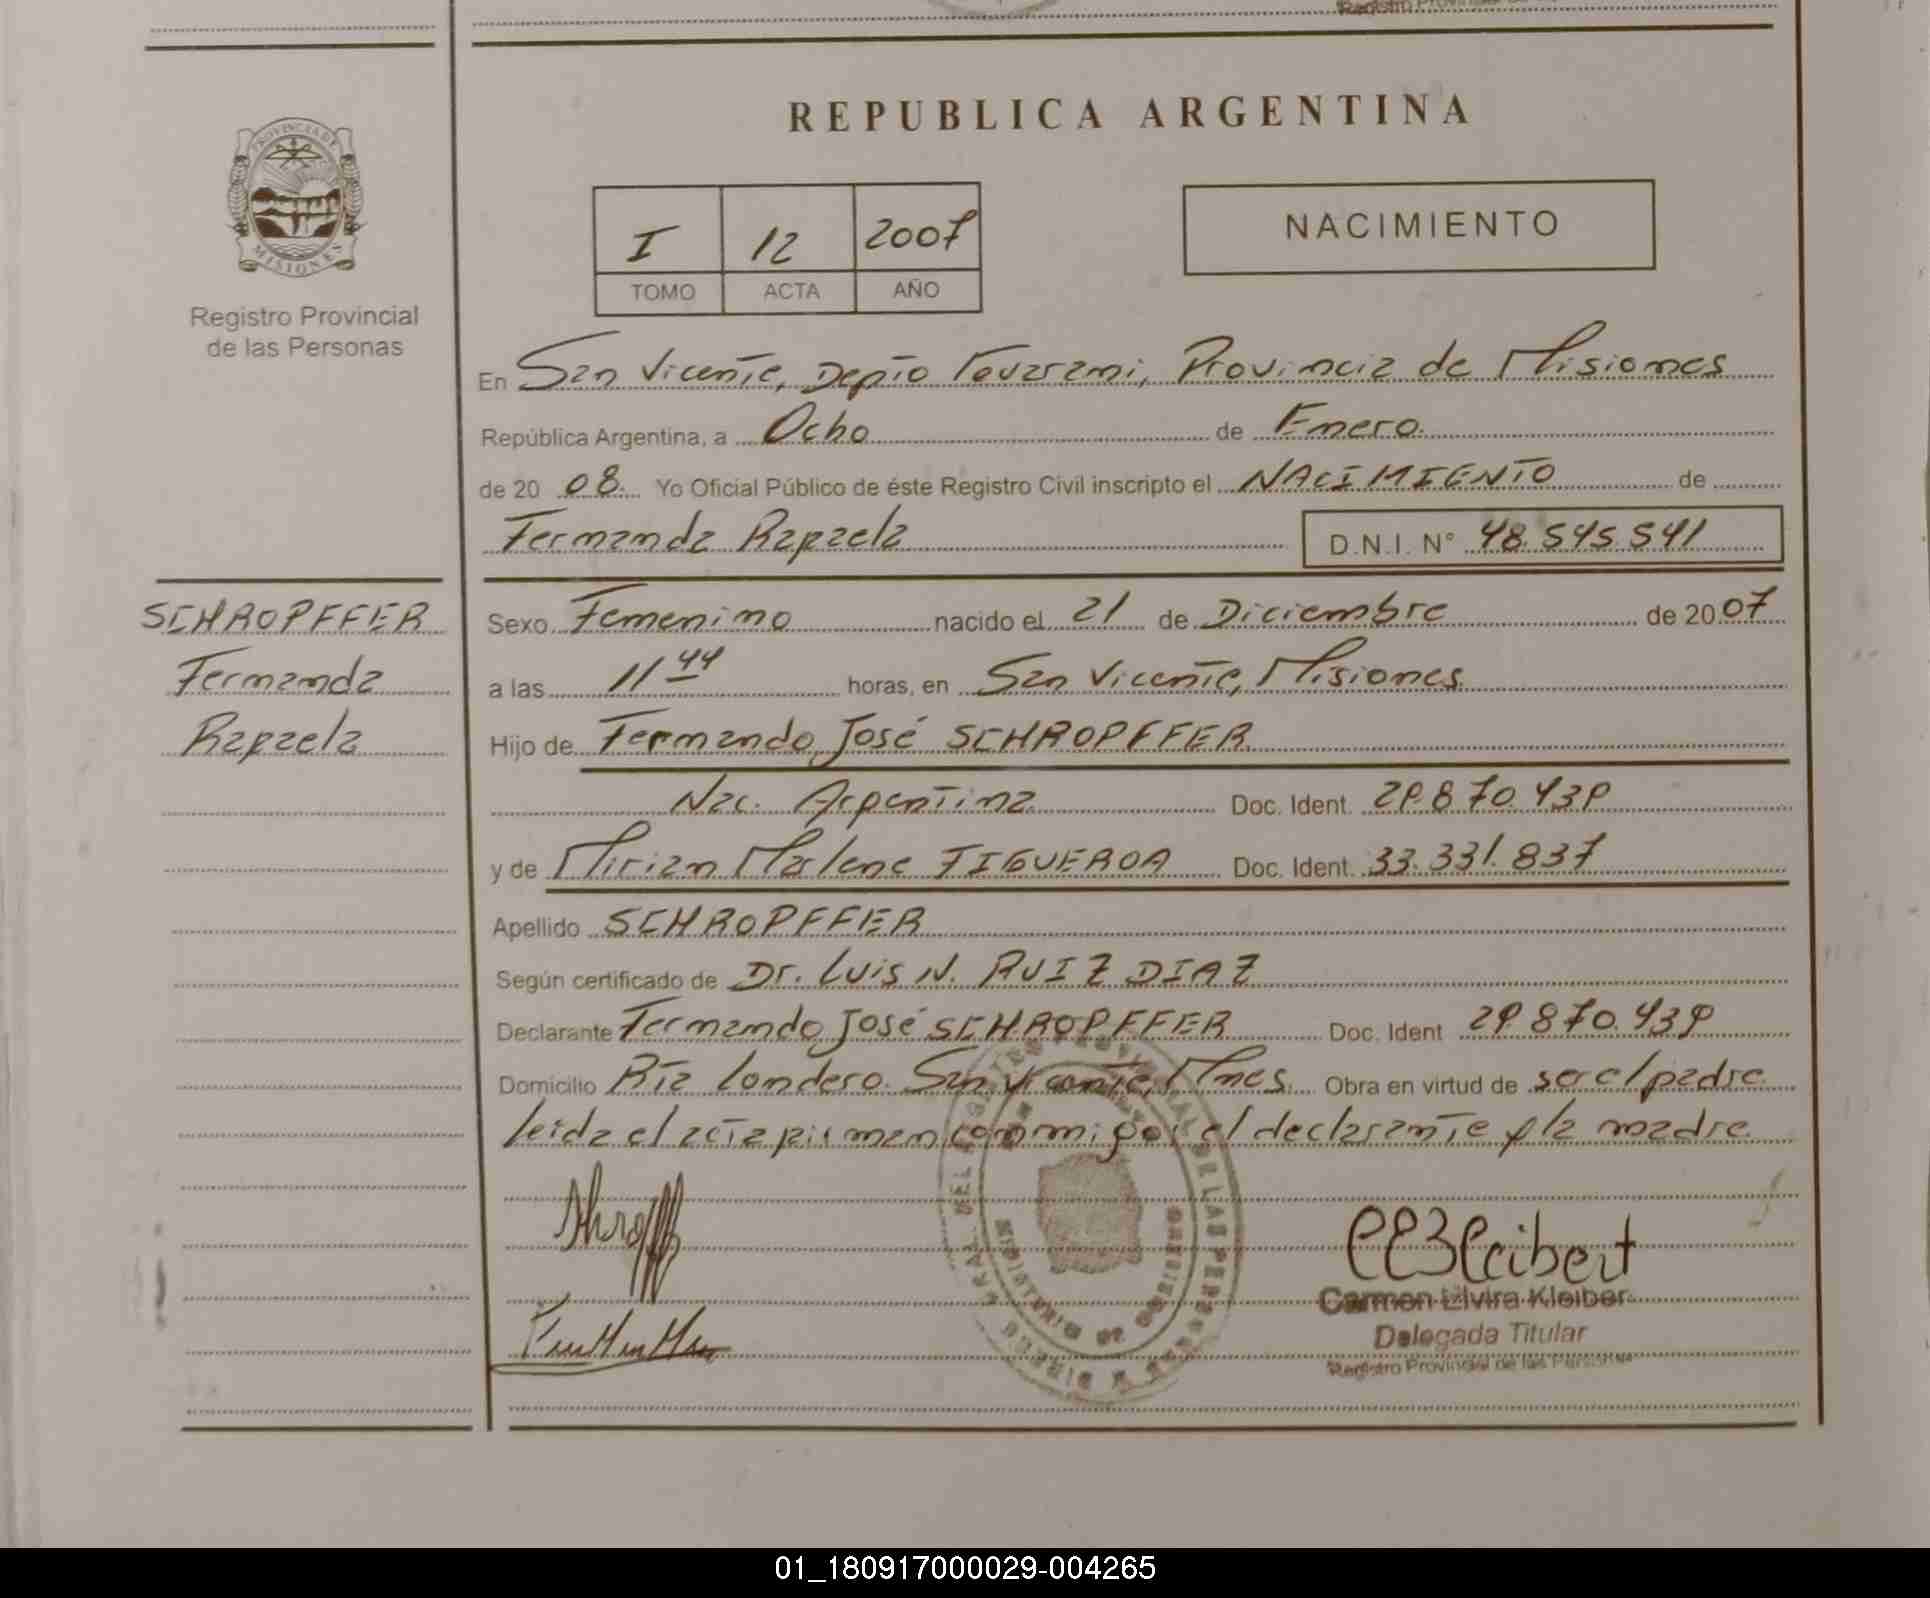 REPUBLICA ARGENTINA
PROVINCIA DE
MISIONES
Registro Provincial
de las Personas
I 12 2007
TOMO ACTA AÑO
NACIMIENTO
En San Vicente, Depto Guarani, Provincia de Misiones
República Argentina, a Ocho de Enero
de 20 08. Yo Oficial Público de éste Registro Civil inscripto el NACIMIENTO de
Fernanda Rafaela D.N.I. N° 48.545.541
SCHROPFFER
Fernanda
Rafaela
Sexo Femenino nacido el 21 de Diciembre de 20 07
a las 11 44 horas, en San Vicente, Misiones
Hijo de Fernando José SCHROPFFER
Nac. Argentina Doc. Ident. 29.870.439
y de Mirian Marlene FIGUEROA Doc. Ident. 33.331.837
Apellido SCHROPFFER
Según certificado de Dr. Luis N. RUIZ DIAZ
Declarante Fernando José SCHROPFFER Doc. Ident 29.870.439
Domicilio Bia Londero. San Vicente, Mnes. Obra en virtud de ser el padre
leida el acta firman conmigo: el declarante y la madre
Carmen Elvira Kleiber
Delegada Titular
Registro Provincial de las Personas
01_180917000029-004265